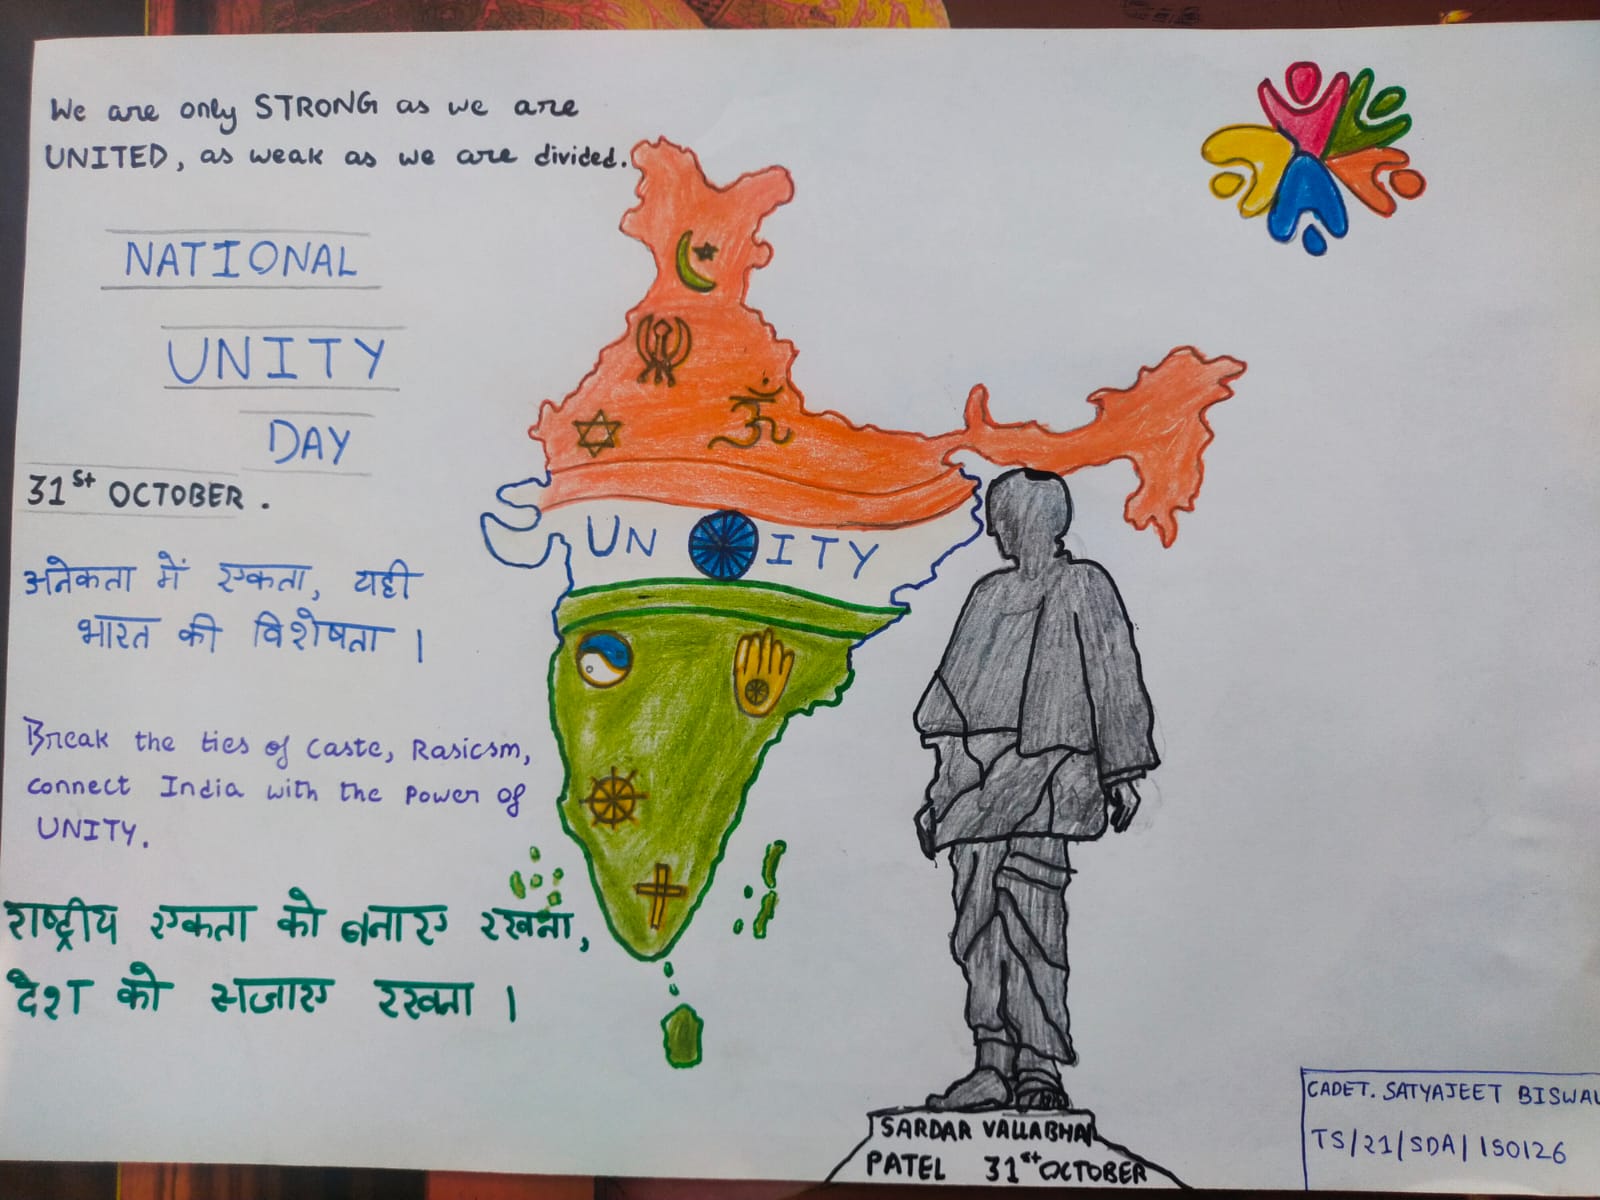 We are only STRONG as we are
UNITED, as weak as we are divided.
NATIONAL
UNITY
DAY
31st OCTOBER.
अनेकता में एकता, यही
भारत की विशेषता ।
Break the ties of Caste, Rasicsm,
connect India with the power of
UNITY.
राष्ट्रीय एकता को बनाए रखना,
देश को सजाए रखना ।
UN ITY
ॐ
SARDAR VALLABHAI
PATEL 31st OCTOBER
CADET. SATYAJEET BISWAL
TS/21/SDA/150126